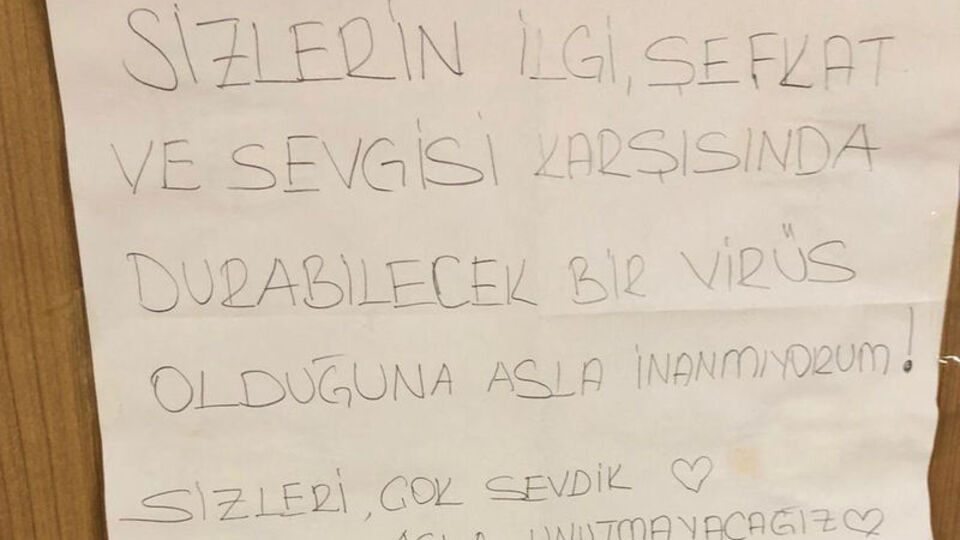 SİZLERİN İLGİ, ŞEFKAT
VE SEVGİSİ KARŞISINDA
DURABİLECEK BİR VİRÜS
OLDUĞUNA ASLA İNANMIYORUM!
SİZLERİ, ÇOK SEVDİK ♡
ASLA UNUTMAYACAĞIZ ♡